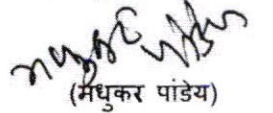 (मधुकर पांडेय)